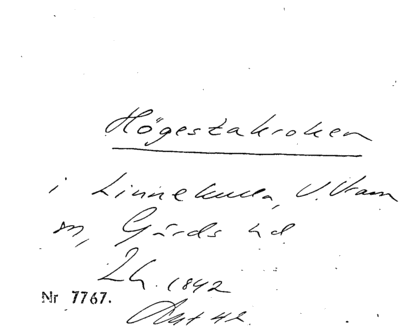 Högestakroken
i Linnekulla, V. Vram
sn, Gärds hd
Lh. 1842
Nr 7767.